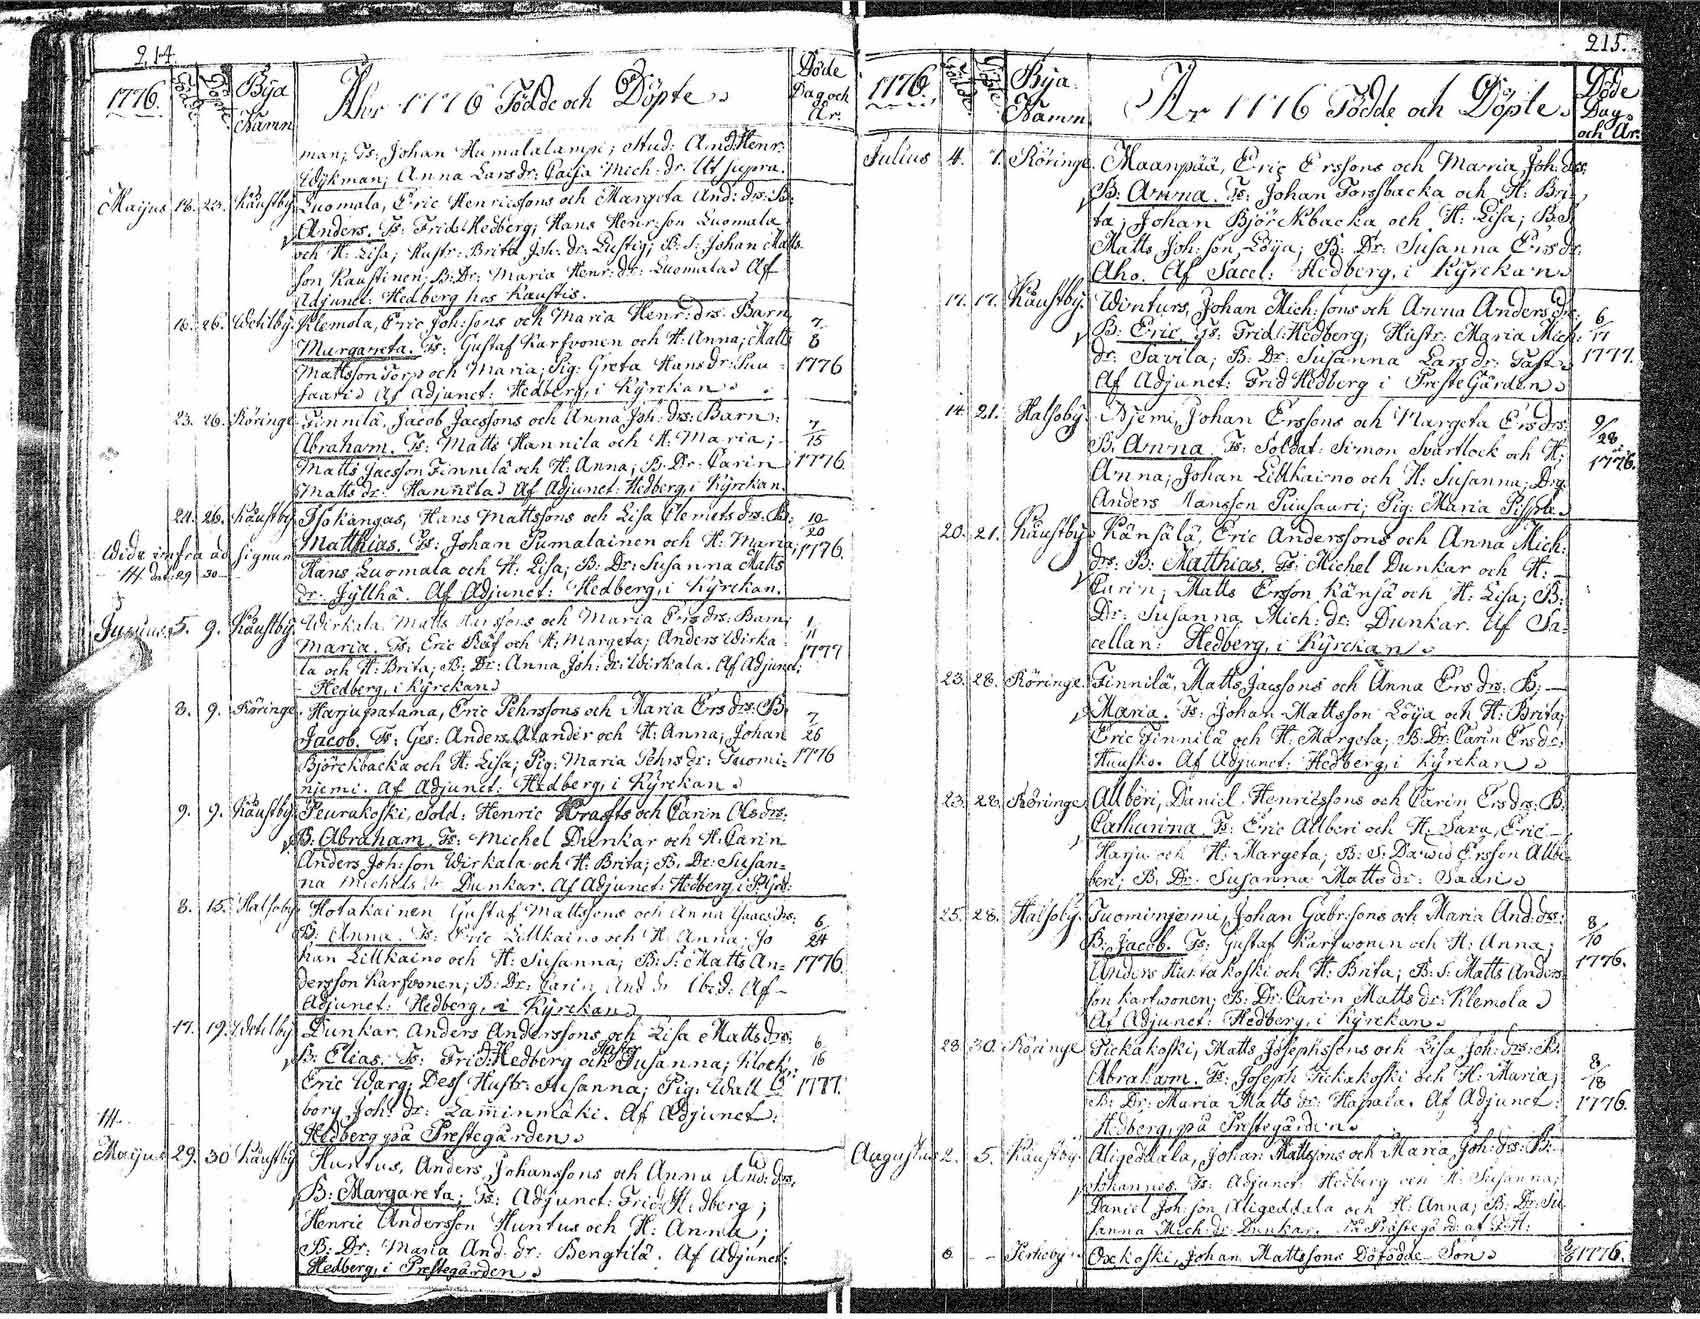 214.
1776.
Födde
Döpte
Bya
Namn
Åhr 1776 Födde och Döpte.
Döde
Dag och
År.
man; Ts: Johan Humalalampi; Stud: And: Henr:
Wijkman; Anna Lars dr: Caisa Mich: dr: Ut supra.
Maijus 18. 23. Käustby Luomala, Eric Henricssons och Margeta And: drs: B:
Anders. Ts: Frid: Hedberg; Hans Henr:son Luomala
och H: Lisa; Hustr: Brita Joh: dr: Lustig; B: S: Johan Matts
son Kaustinen; B: Dr: Maria Henr: dr: Luomala. Af
Adjunct: Hedberg hos Kaustis.
16. 26. Wetilby. Klemola, Eric Joh:sons och Maria Henr: drs: Barn
Margareta. Ts: Gustaf Karfvonen och H: Anna; Matts
Mattsson Torp och Maria; Pig: Greta Hans dr: Puu-
saari. Af Adjunct: Hedberg, i Kÿrckan.
7/8 1776
23. 26. Röringe Finnilä, Jacob Jacssons och Anna Joh: drs: Barn:
Abraham. Ts: Matts Hannila och H: Maria;
Matts Jacsson Finnilä och H: Anna; B: Dr: Carin
Matts dr: Hannila. Af Adjunct: Hedberg, i Kÿrckan.
7/15 1776.
24. 26. Käustby Isokangas, Hans Mattssons och Lisa Clemets drs: B:
Matthias. Ts: Johan Pumalainen och H: Maria;
Hans Luomala och H: Lisa; B: Dr: Susanna Matts
dr: Jyllhä. Af Adjunct: Hedberg, i Kÿrckan.
10/20 1776.
Wide infra ad signum
14 dat: 29 30
Junius 5. 9. Käustby. Wirkala, Matts Hussons och Maria Ers drs: Barn
Maria. Ts: Eric Räf och H: Margeta; Anders Wirka-
la och H: Brita; B: Dr: Anna Joh: dr: Wirkala. Af Adjunct:
Hedberg, i Kÿrckan.
1/11 1777
8. 9. Röringe. Harjupatana, Eric Pehrssons och Maria Ers drs: B:
Jacob. Ts: Ges: Anders Alander och H: Anna; Johan
Björckbacka och H: Lisa; Pig: Maria Pehrs dr: Tuomi-
niemi. Af Adjunct: Hedberg, i Kÿrckan.
7/26 1776
9. 9. Käustby Peurakoski, Sold: Henric Krafts och Carin Ols drs:
B: Abraham. Ts: Michel Dunkar och H: Carin
Anders Joh:son Wirkala och H: Brita; B: Dr: Susan-
na Michels dr: Dunkar. Af Adjunct: Hedberg,
8. 15. Halsoby Hotakainen Gustaf Mattssons och Anna Isaacs drs:
B: Anna. Ts: Eric Lillkaino och H: Anna; Jo
han Lillkaino och H: Susanna; B: S: Matts An-
dersson Karfvonen; B: Dr: Carin And dr: Af
Adjunct: Hedberg, i Kÿrckan.
6/24 1776.
17. 19. Wetilby Dunkar, Anders Anderssons och Lisa Matts drs:
B: Elias. Ts: Frid: Hedberg och Hustr Susanna; Klock:
Eric Warg; Dess Hustr: Susanna; Pig: Wall
borg Joh: dr: Lamminmäki. Af Adjunct:
Hedberg, på Prestegården.
6/16 1777.
14.
Maijus 29. 30 Käustby Huntus, Anders Johanssons och Anna And: drs:
B: Margareta; Ts: Adjunct: Frid: Hedberg;
Henric Andersson Huntus och H: Anna;
B: Dr: Maria And: dr: Bengtilä. Af Adjunct:
Hedberg, i Prestegården.
215.
1776.
Födde
Döpte
Bya
Namn
År 1776 Födde och Döpte.
Döde
Dag
och År.
Julius 4. 7. Röringe. Maanpää, Eric Erssons och Maria Joh: drs:
B: Anna. Ts: Johan Forssbacka och H: Bri-
ta; Johan Björckbacka och H: Lisa; B: S:
Matts Joh:son Löija; B: Dr: Susanna Ers dr:
Aho. Af Sacel: Hedberg, i Kÿrckan.
17. 17. Käustby. Winturs, Johan Mich:sons och Anna Anders drs:
B: Eric. Ts: Frid: Hedberg; Hustr: Maria Mich:
dr: Savila; B: Dr: Susanna Lars dr: Tast.
Af Adjunct: Frid Hedberg i PresteGården.
6/17 1777.
14. 21. Halsoby. Njemi, Johan Erssons och Margeta Ers drs:
B. Anna. Ts: Soldat: Simon Svartlock och H:
Anna; Johan Lillkaino och H: Susanna; Drg:
Anders Hansson Puusaari; Pig: Maria
9/28 1776.
20. 21. Käustby Känsälä, Eric Anderssons och Anna Mich:
drs: B: Matthias. Ts: Michel Dunkar och H:
Carin; Matts Ersson Känsä och H: Lisa; B:
Dr: Susanna Mich: dr: Dunkar. Af Sa-
cellan: Hedberg, i Kÿrckan.
23. 28. Röringe. Finnilä, Matts Jacssons och Anna Ers drs: B:
Maria. Ts: Johan Mattsson Löija och H: Brita;
Eric Finnilä och H: Margeta; B: Dr: Carin Ers dr:
Huusko. Af Adjunct: Hedberg, i Kyrckan.
23. 28. Röringe Allberi, Daniel Henricssons och Carin Ers drs: B:
Catharina. Ts: Eric Allberi och H: Sara, Eric
Harju och H: Margeta; B: S: David Ersson Allbe-
beri; B: Dr: Susanna Matts dr: Saari.
25. 28. Halsoby. Tuominjemi, Johan Gabr:sons och Maria And: drs:
B: Jacob. Ts: Gustaf Karfwonen och H: Anna;
Anders Huntakoski och H: Brita; B: S: Matts Anders-
son Karfwonen; B: Dr: Carin Matts dr: Klemola.
Af Adjunct: Hedberg, i Kÿrckan.
8/10 1776.
28 30. Röringe Pickakoski, Matts Josephssons och Lisa Joh: drs: B:
Abraham. Ts: Joseph Pickakoski och H: Maria;
B: Dr: Maria Matts dr: Hapala. Af Adjunct:
Hedberg, på Prestegården.
8/18 1776.
Augustus 2. 5. Käustby. Aligeddala, Johan Mattssons och Maria Joh: drs: B:
Johannes. Ts: Adjunct: Hedberg och H: Susanna;
Daniel Joh:son Aligeddala och H: Anna; B: Dr: Su-
sanna Mich: dr: Dunkar. På Prästegård: af F: H:
6 - - Perhoby. Oxkoski, Johan Mattssons Dödfödde Son.
1776.